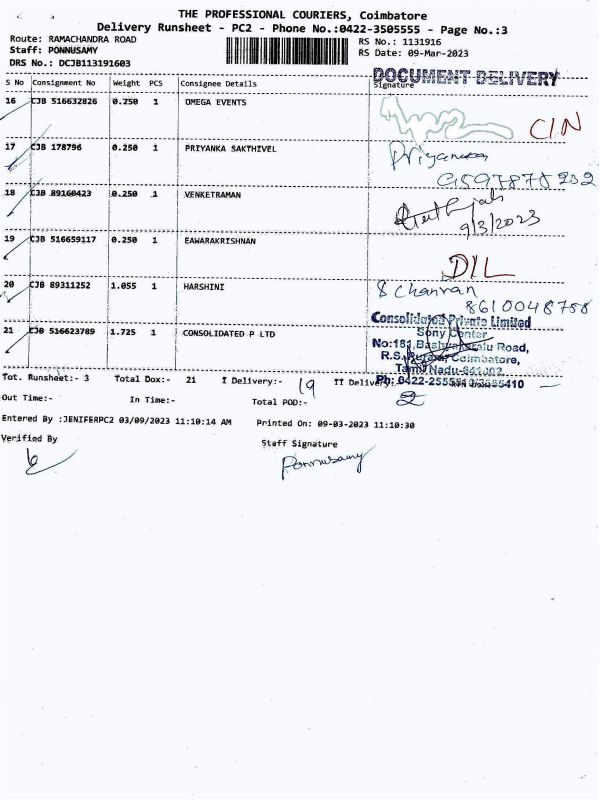 THE PROFESSIONAL COURIERS, Coimbatore
Delivery Runsheet - PC2 - Phone No.:0422-3505555 - Page No.:3
Route: RAMACHANDRA ROAD
RS No.: 1131916
Staff: PONNUSAMY
RS Date: 09-Mar-2023
DRS No.: DCJB113191603
DOCUMENT DELIVERY
S No Consignment No Weight PCS Consignee Details Signature
16 CJB 516632826 0.250 1 OMEGA EVENTS
CIN
17 CJB 178796 0.250 1 PRIYANKA SAKTHIVEL
18 CJB 89160423 0.250 1 VENKETRAMAN
9/3/2023
19 CJB 516659117 0.250 1 EAWARAKRISHNAN
DIL
20 CJB 89311252 1.055 1 HARSHINI
8610048788
Consolidated Private Limited
21 CJB 516623789 1.725 1 CONSOLIDATED P LTD
Sony Center
No:181, Road,
R.S. Coimbatore,
Tamil Nadu-641002
Tot. Runsheet:- 3 Total Dox:- 21 I Delivery:- 19 II Delivery:- 2
Ph: 0422-2555510/2555410
Out Time:- In Time:- Total POD:-
Entered By :JENIFERPC2 03/09/2023 11:10:14 AM Printed On: 09-03-2023 11:10:30
Verified By Staff Signature
Ponnusamy